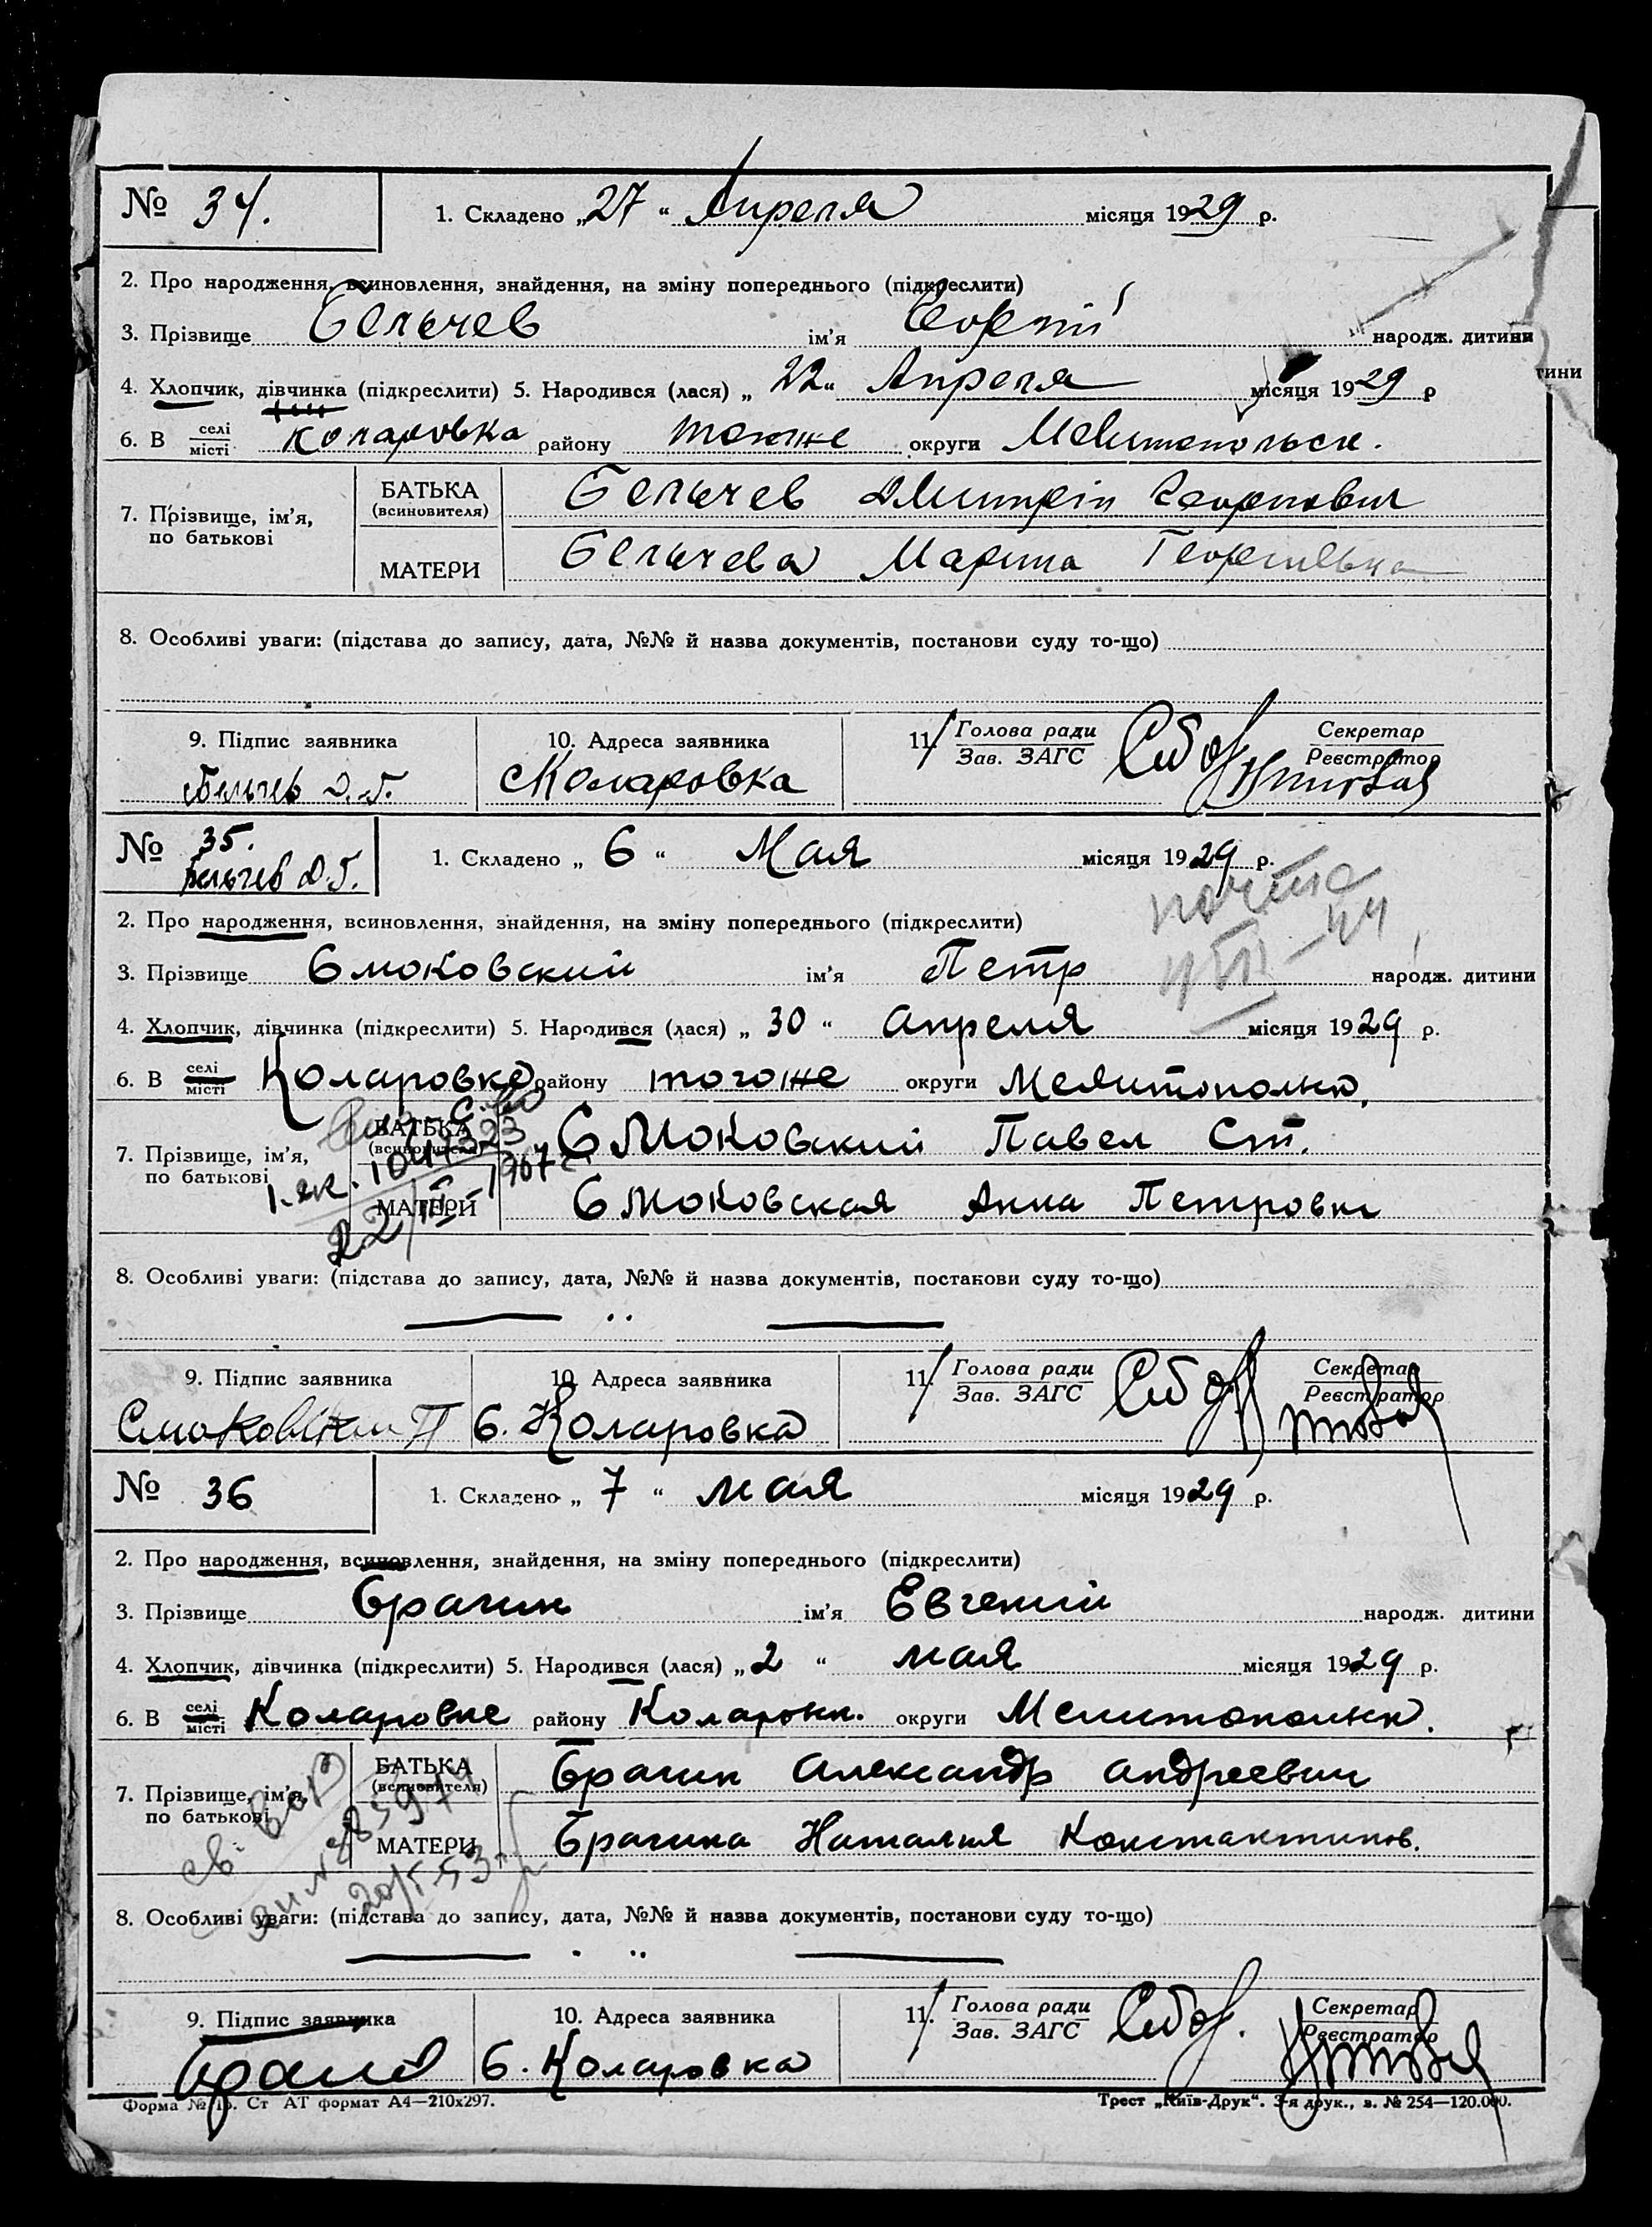 № 34. 1. Складено „27“ Апреля місяця 1929 р.
2. Про народження, всиновлення, знайдення, на зміну попереднього (підкреслити)
3. Прізвище Бельчев ім'я Георгій народж. дитини
4. Хлопчик, дівчинка (підкреслити) 5. Народився (лася) „22“ Апреля місяця 1929 р
тини
6. В селі місті Коларовка району тогоже округи Мелитопольск.
7. Прізвище, ім'я, по батькові
БАТЬКА (всиновителя) Бельчев Дмитрій Георгиевич
МАТЕРИ Бельчева Марина Георгиевна
8. Особливі уваги: (підстава до запису, дата, №№ й назва документів, постанови суду то-що)
9. Підпис заявника 10. Адреса заявника 11. Голова ради Зав. ЗАГС Секретар Реєстратор
Бельчев Д. Г. с Коларовка
№ 35. 1. Складено „6“ Мая місяця 1929 р.
Бельчев Д. Г.
2. Про народження, всиновлення, знайдення, на зміну попереднього (підкреслити)
3. Прізвище Смоковский ім'я Петр народж. дитини
4. Хлопчик, дівчинка (підкреслити) 5. Народився (лася) „30“ апреля місяця 1929 р.
6. В селі місті Коларовка району тогоже округи Мелитопольк.
7. Прізвище, ім'я, по батькові
БАТЬКА (всиновителя) Смоковский Павел Ст.
МАТЕРИ Смоковская Анна Петровн
1967
8. Особливі уваги: (підстава до запису, дата, №№ й назва документів, постанови суду то-що)
9. Підпис заявника 10. Адреса заявника 11. Голова ради Зав. ЗАГС Секретар Реєстратор
Смоковский П С. Коларовка
№ 36 1. Складено „7“ мая місяця 1929 р.
2. Про народження, всиновлення, знайдення, на зміну попереднього (підкреслити)
3. Прізвище Брагин ім'я Евгений народж. дитини
4. Хлопчик, дівчинка (підкреслити) 5. Народився (лася) „2“ мая місяця 1929 р.
6. В селі місті Коларовке району Коларовк. округи Мелитопольк.
7. Прізвище, ім'я, по батькові
БАТЬКА (всиновителя) Брагин Александр Андреевич
МАТЕРИ Брагина Наталия Константинов.
8. Особливі уваги: (підстава до запису, дата, №№ й назва документів, постанови суду то-що)
9. Підпис заявника 10. Адреса заявника 11. Голова ради Зав. ЗАГС Секретар Реєстратор
С. Коларовка
Форма № 15. Ст АТ формат А4—210х297. Трест „Київ-Друк“. 3-я друк., з. № 254—120.000.